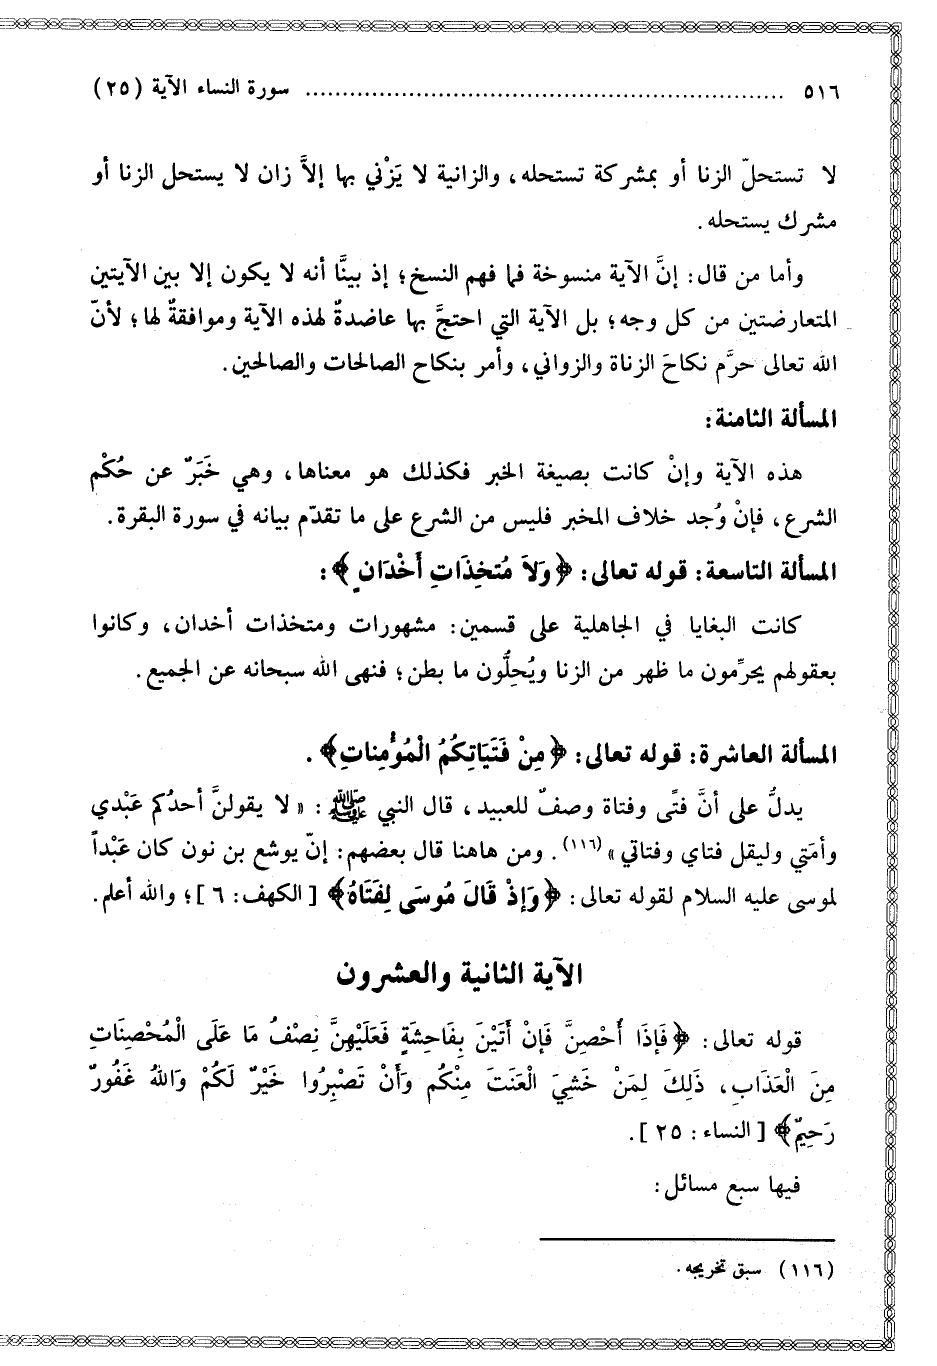 ٥١٦ ................................................................ سورة النساء الآية (٢٥)
لا تستحلّ الزنا أو بمشركة تستحله، والزانية لا يَزْني بها إلاَّ زان لا يستحل الزنا أو
مشرك يستحله.
وأما من قال: إنَّ الآية منسوخة فما فهم النسخ؛ إذ بينَّا أنه لا يكون إلا بين الآيتين
المتعارضتين من كل وجه؛ بل الآية التي احتجَّ بها عاضدةٌ لهذه الآية وموافقةٌ لها؛ لأنّ
الله تعالى حرَّم نكاحَ الزناة والزواني، وأمر بنكاح الصالحات والصالحين.
المسألة الثامنة:
هذه الآية وإنْ كانت بصيغة الخبر فكذلك هو معناها، وهي خَبَرٌ عن حُكْم
الشرع، فإنْ وُجد خلاف المخبر فليس من الشرع على ما تقدّم بيانه في سورة البقرة.
المسألة التاسعة: قوله تعالى: ﴿وَلاَ مُتخِذَاتِ أَخْدَانٍ﴾:
كانت البغايا في الجاهلية على قسمين: مشهورات ومتخذات أخدان، وكانوا
بعقولهم يحرِّمون ما ظهر من الزنا ويُحِلُّون ما بطن؛ فنهى الله سبحانه عن الجميع.
المسألة العاشرة: قوله تعالى: ﴿مِنْ فَتَيَاتِكُمُ الْمُؤْمِناتِ﴾.
يدلُّ على أنَّ فتًى وفتاة وصفٌ للعبيد، قال النبي ﷺ: «لا يقولنَّ أحدُكم عَبْدي
وأمَتي وليقل فتاي وفتاتي»(١١٦). ومن هاهنا قال بعضهم: إنّ يوشع بن نون كان عَبْداً
لموسى عليه السلام لقوله تعالى: ﴿وَإِذْ قَالَ مُوسَى لِفَتَاهُ﴾ [الكهف: ٦]؛ والله أعلم.
الآية الثانية والعشرون
قوله تعالى: ﴿فَإِذَا أُحْصِنَّ فَإِنْ أَتَيْنَ بِفَاحِشَةٍ فَعَلَيْهِنَّ نِصْفُ مَا عَلَى الْمُحْصِنَاتِ
مِنَ الْعَذَابِ، ذَلِكَ لِمَنْ خَشِيَ الْعَنَتَ مِنْكُم وَأَنْ تَصْبِرُوا خَيْرٌ لَكُمْ وَاللهُ غَفُورٌ
رَحِيمٌ﴾ [النساء: ٢٥].
فيها سبع مسائل:
(١١٦) سبق تخريجه.